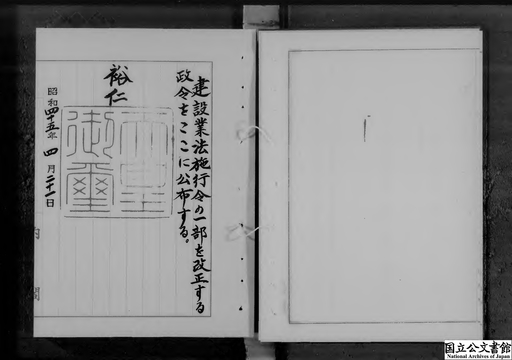 建設業法施行令の一部を改正する
政令をここに公布する。
裕仁
天皇御璽
昭和四十五年四月二十一日
内閣
国立公文書館
National Archives of Japan